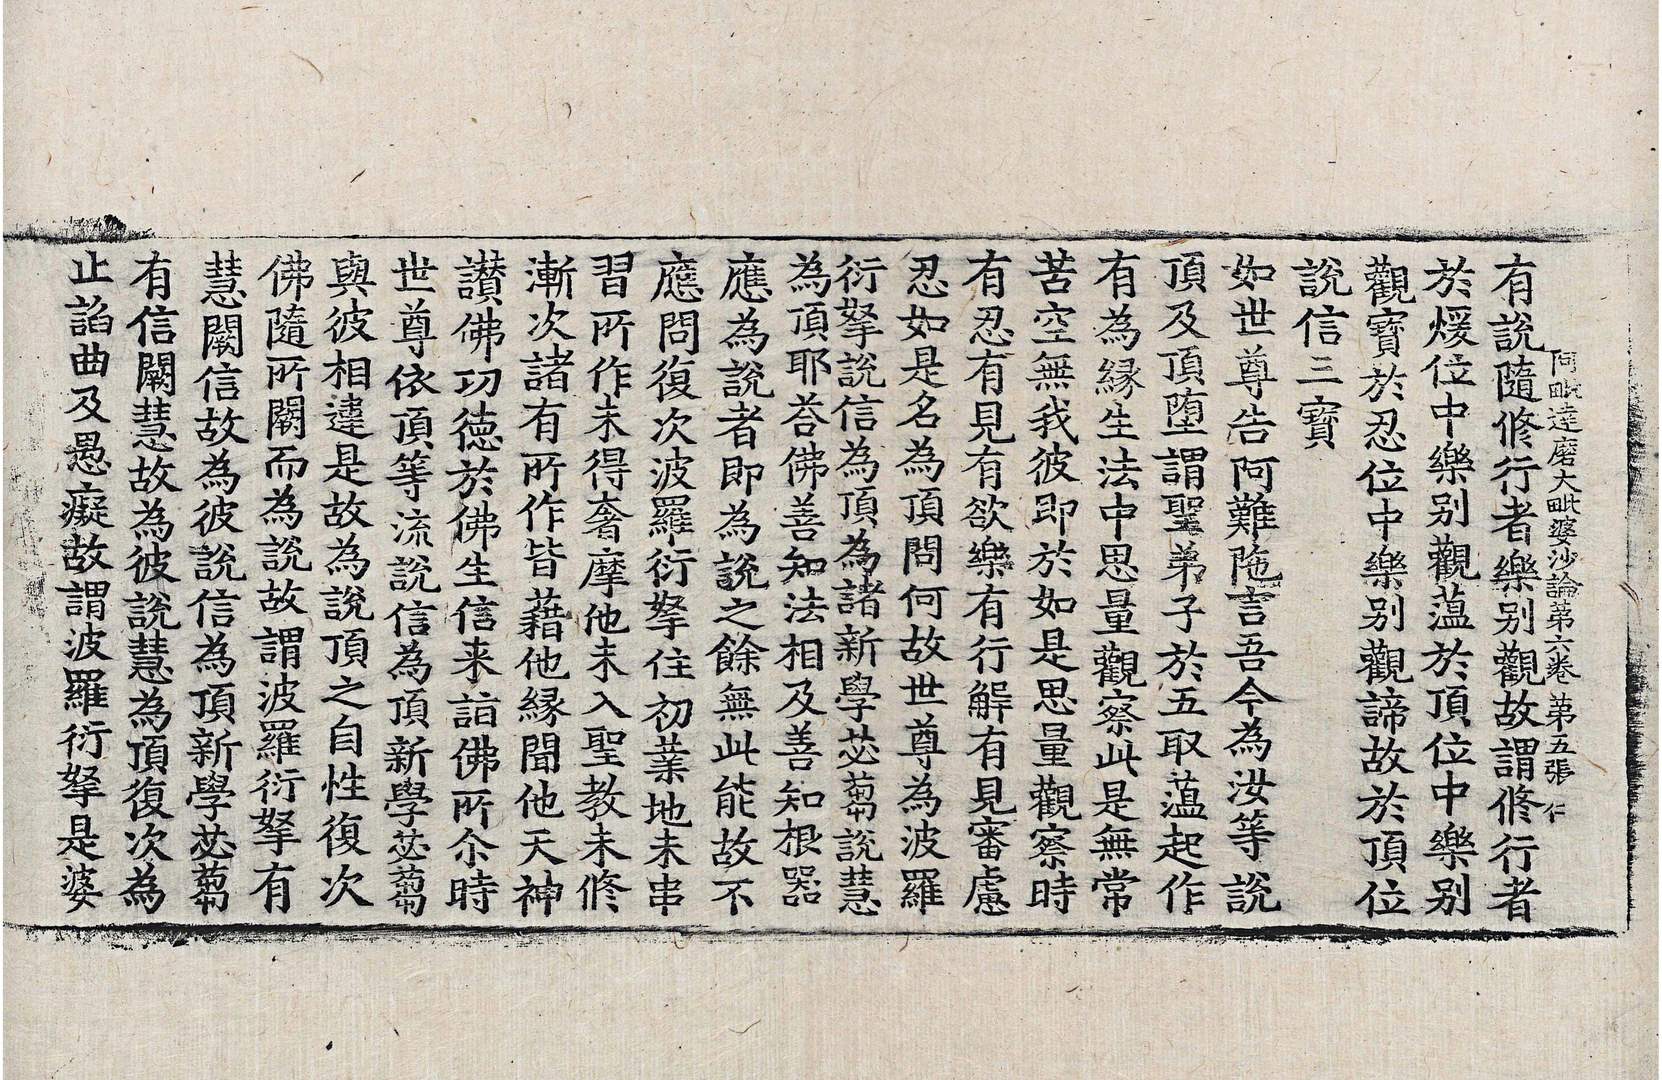 阿毗達磨大毗婆沙論第六卷 第五張 仁
有說隨修行者樂别觀故謂修行者
於煖位中樂别觀薀於頂位中樂别
觀寶於忍位中樂别觀諦故於頂位
說信三寶
如世尊告阿難陁言吾今為汝等說
頂及頂墮謂聖弟子於五取薀起作
有為緣生法中思量觀察此是無常
苦空無我彼即於如是思量觀察時
有忍有見有欲樂有行解有見審慮
忍如是名為頂問何故世尊為波羅
衍拏說信為頂為諸新學苾蒭說慧
為頂耶荅佛善知法相及善知根器
應為說者即為說之餘無此能故不
應問復次波羅衍拏住初業地未串
習所作未得奢摩他未入聖教未修
漸次諸有所作皆藉他緣聞他天神
讃佛功德於佛生信来詣佛所尒時
世尊依頂等流說信為頂新學苾蒭
與彼相違是故為說頂之自性復次
佛隨所闕而為說故謂波羅衍拏有
慧闕信故為彼說信為頂新學苾蒭
有信闕慧故為彼說慧為頂復次為
止諂曲及愚癡故謂波羅衍拏是婆